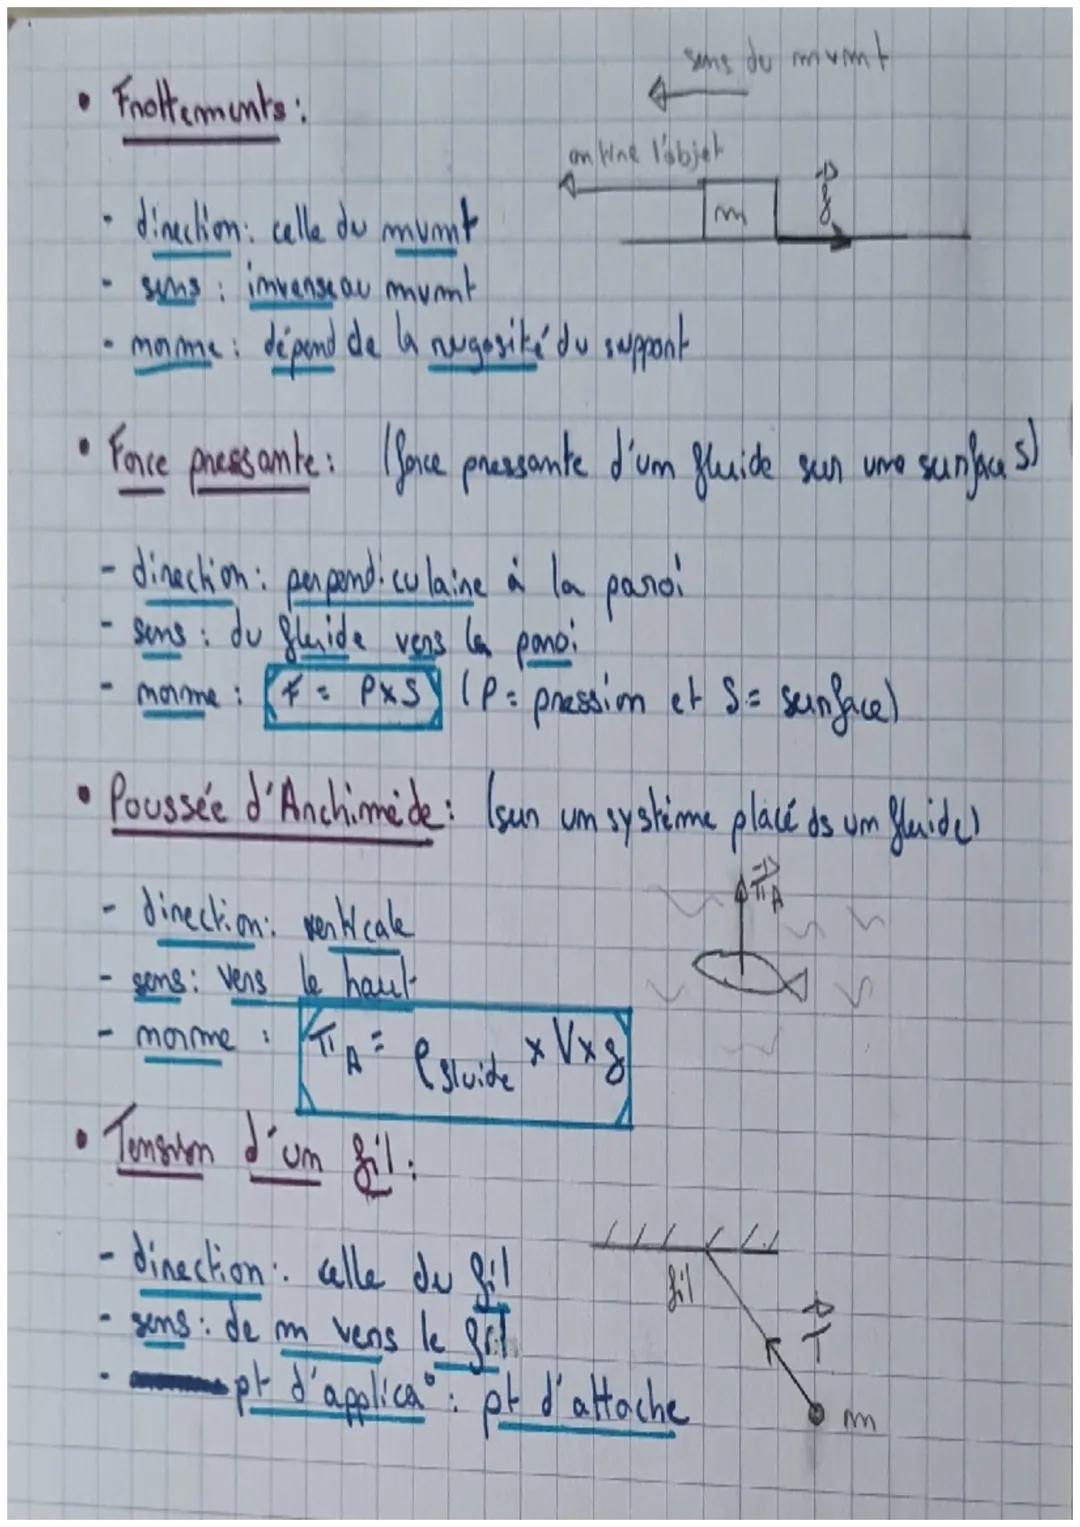 sens du mvmt
• Frottements :
on tire l'objet
m
f
- direction : celle du mvmt
- sens : inverse au mvmt
- norme : dépend de la rugosité du support
• Force pressante : (force pressante d'un fluide sur une surface S)
- direction : perpendiculaire à la paroi
- sens : du fluide vers la paroi
- norme : F = P×S (P = pression et S = surface)
• Poussée d'Archimède : (sur un système placé ds un fluide)
π A
- direction : verticale
- sens : vers le haut
- norme : π A = ρ fluide × V × g
• Tension d'un fil :
- direction : celle du fil
fil
T
- sens : de m vers le fil
- pt d'applica° : pt d'attache
m